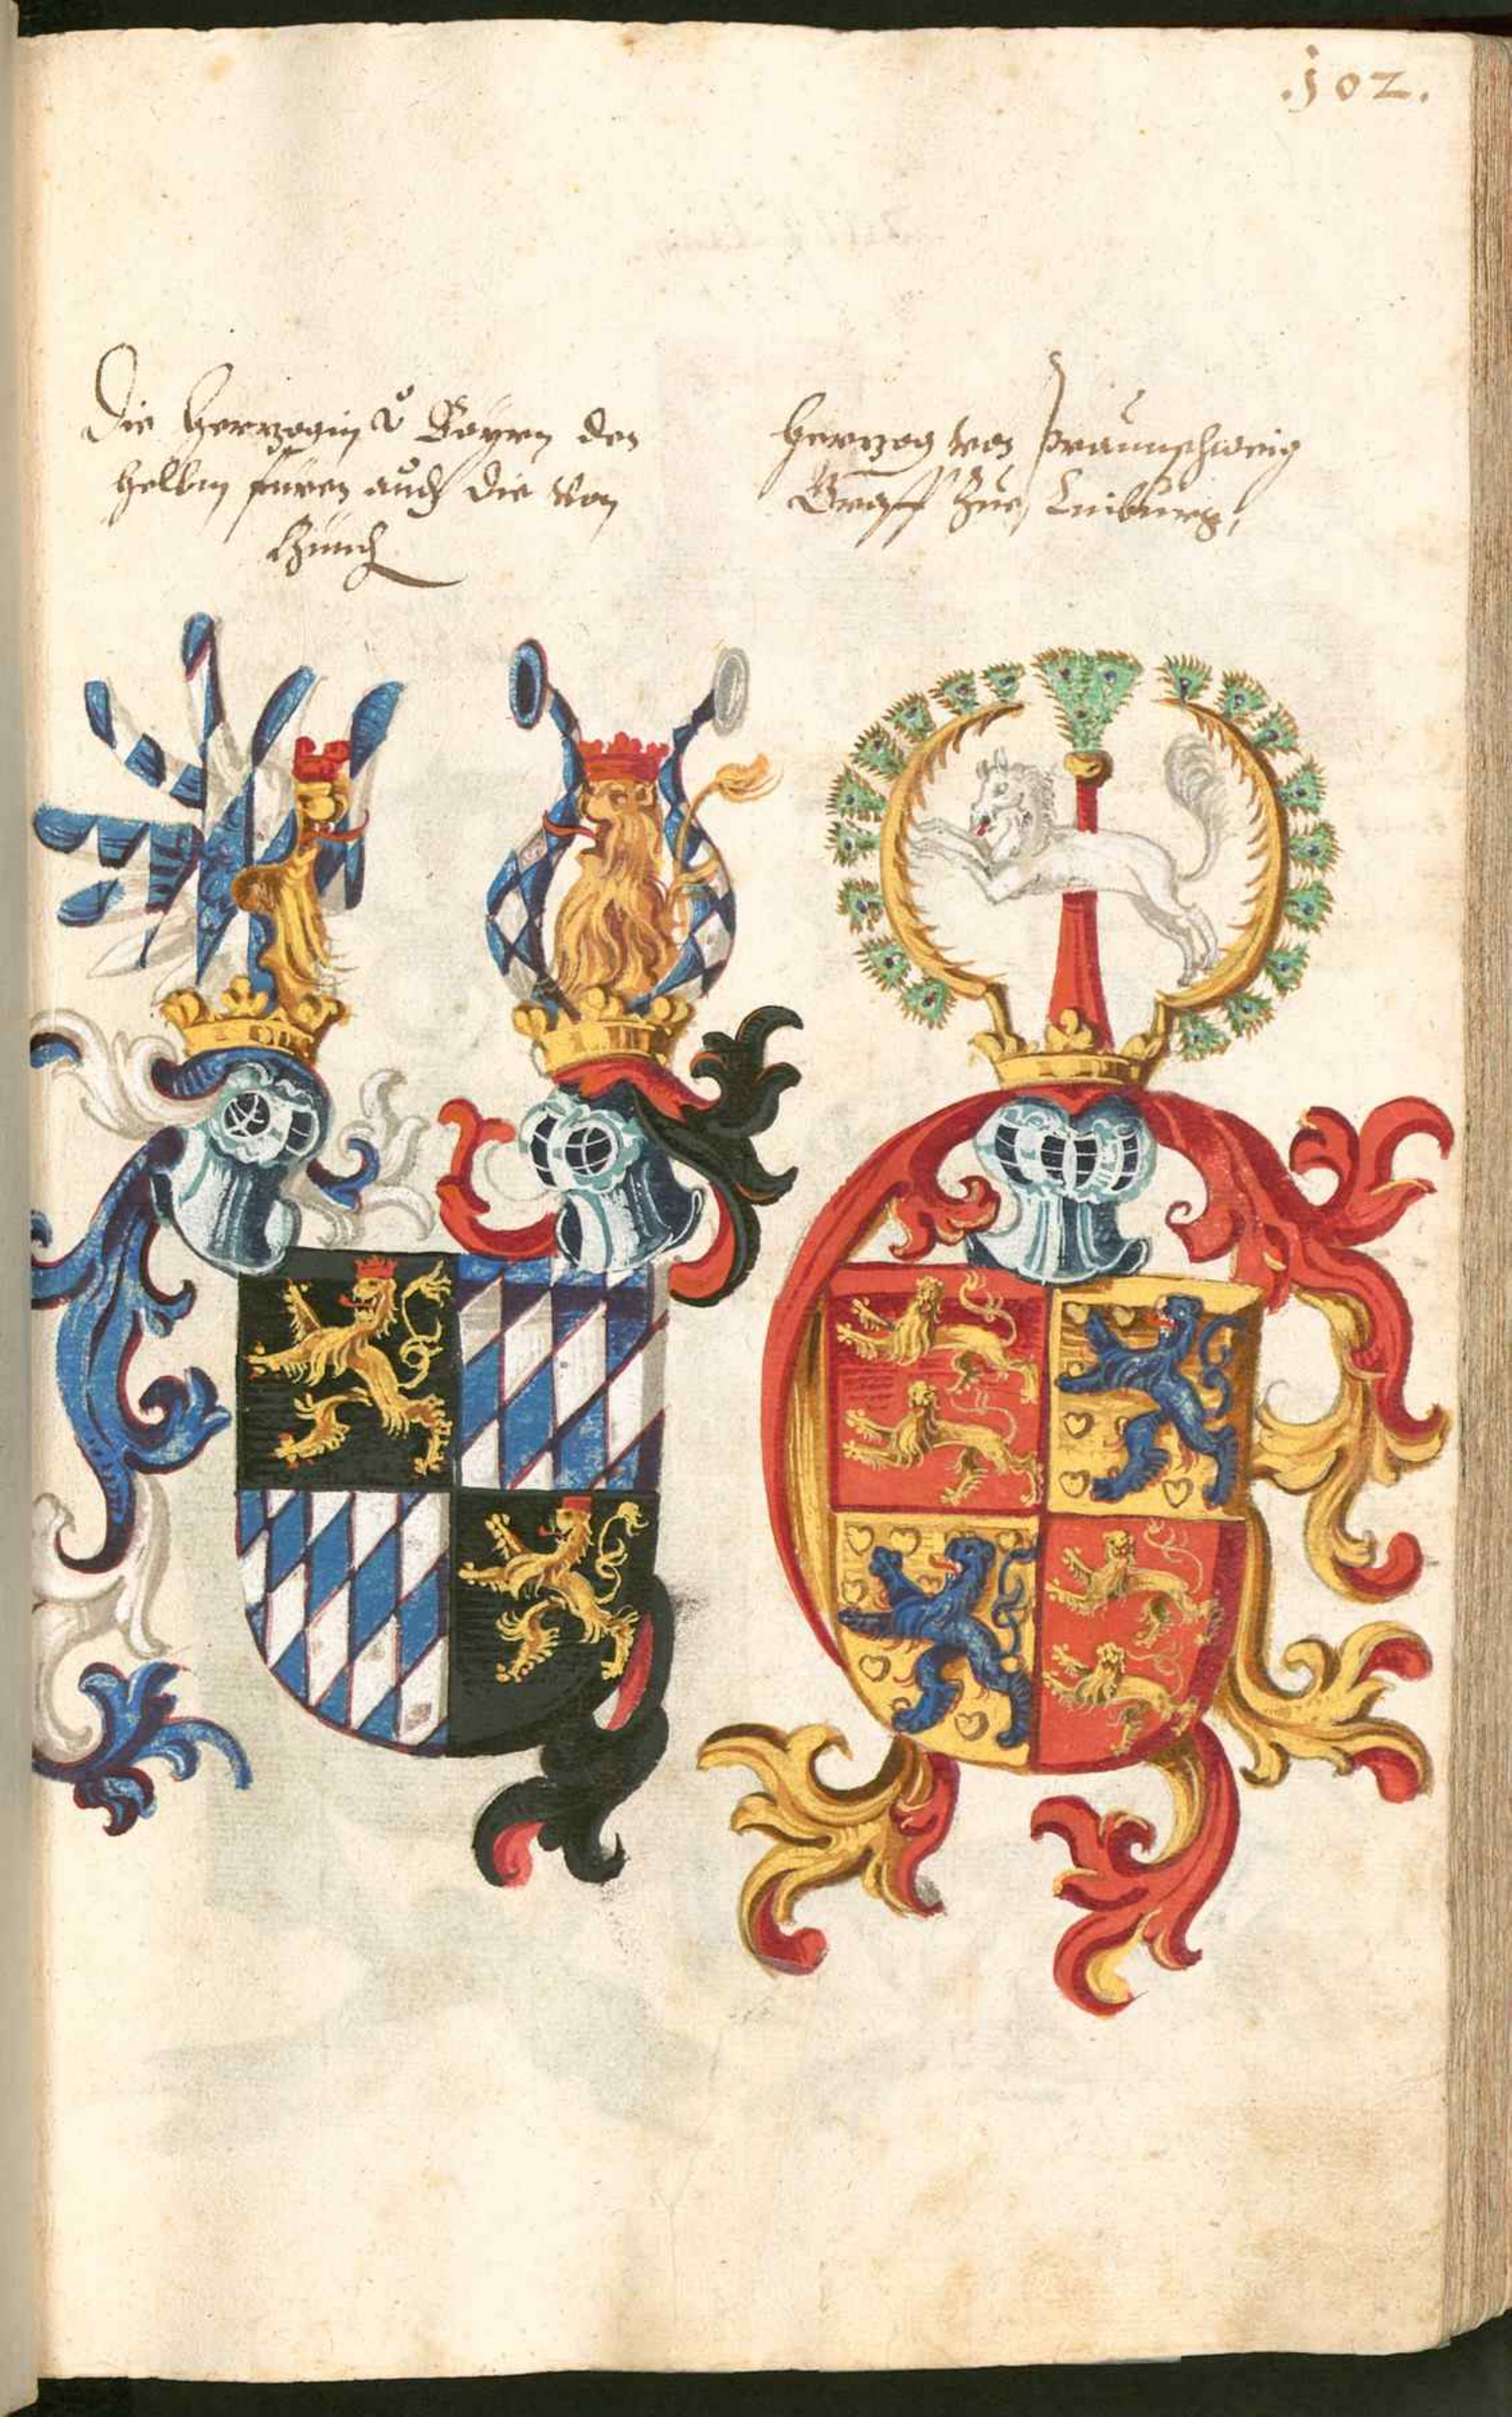 .102.
Die Herzogin v̊ Bayrn den
selben füren auch die von

Herzog von Praunschweig
Graff zue Luneburg,